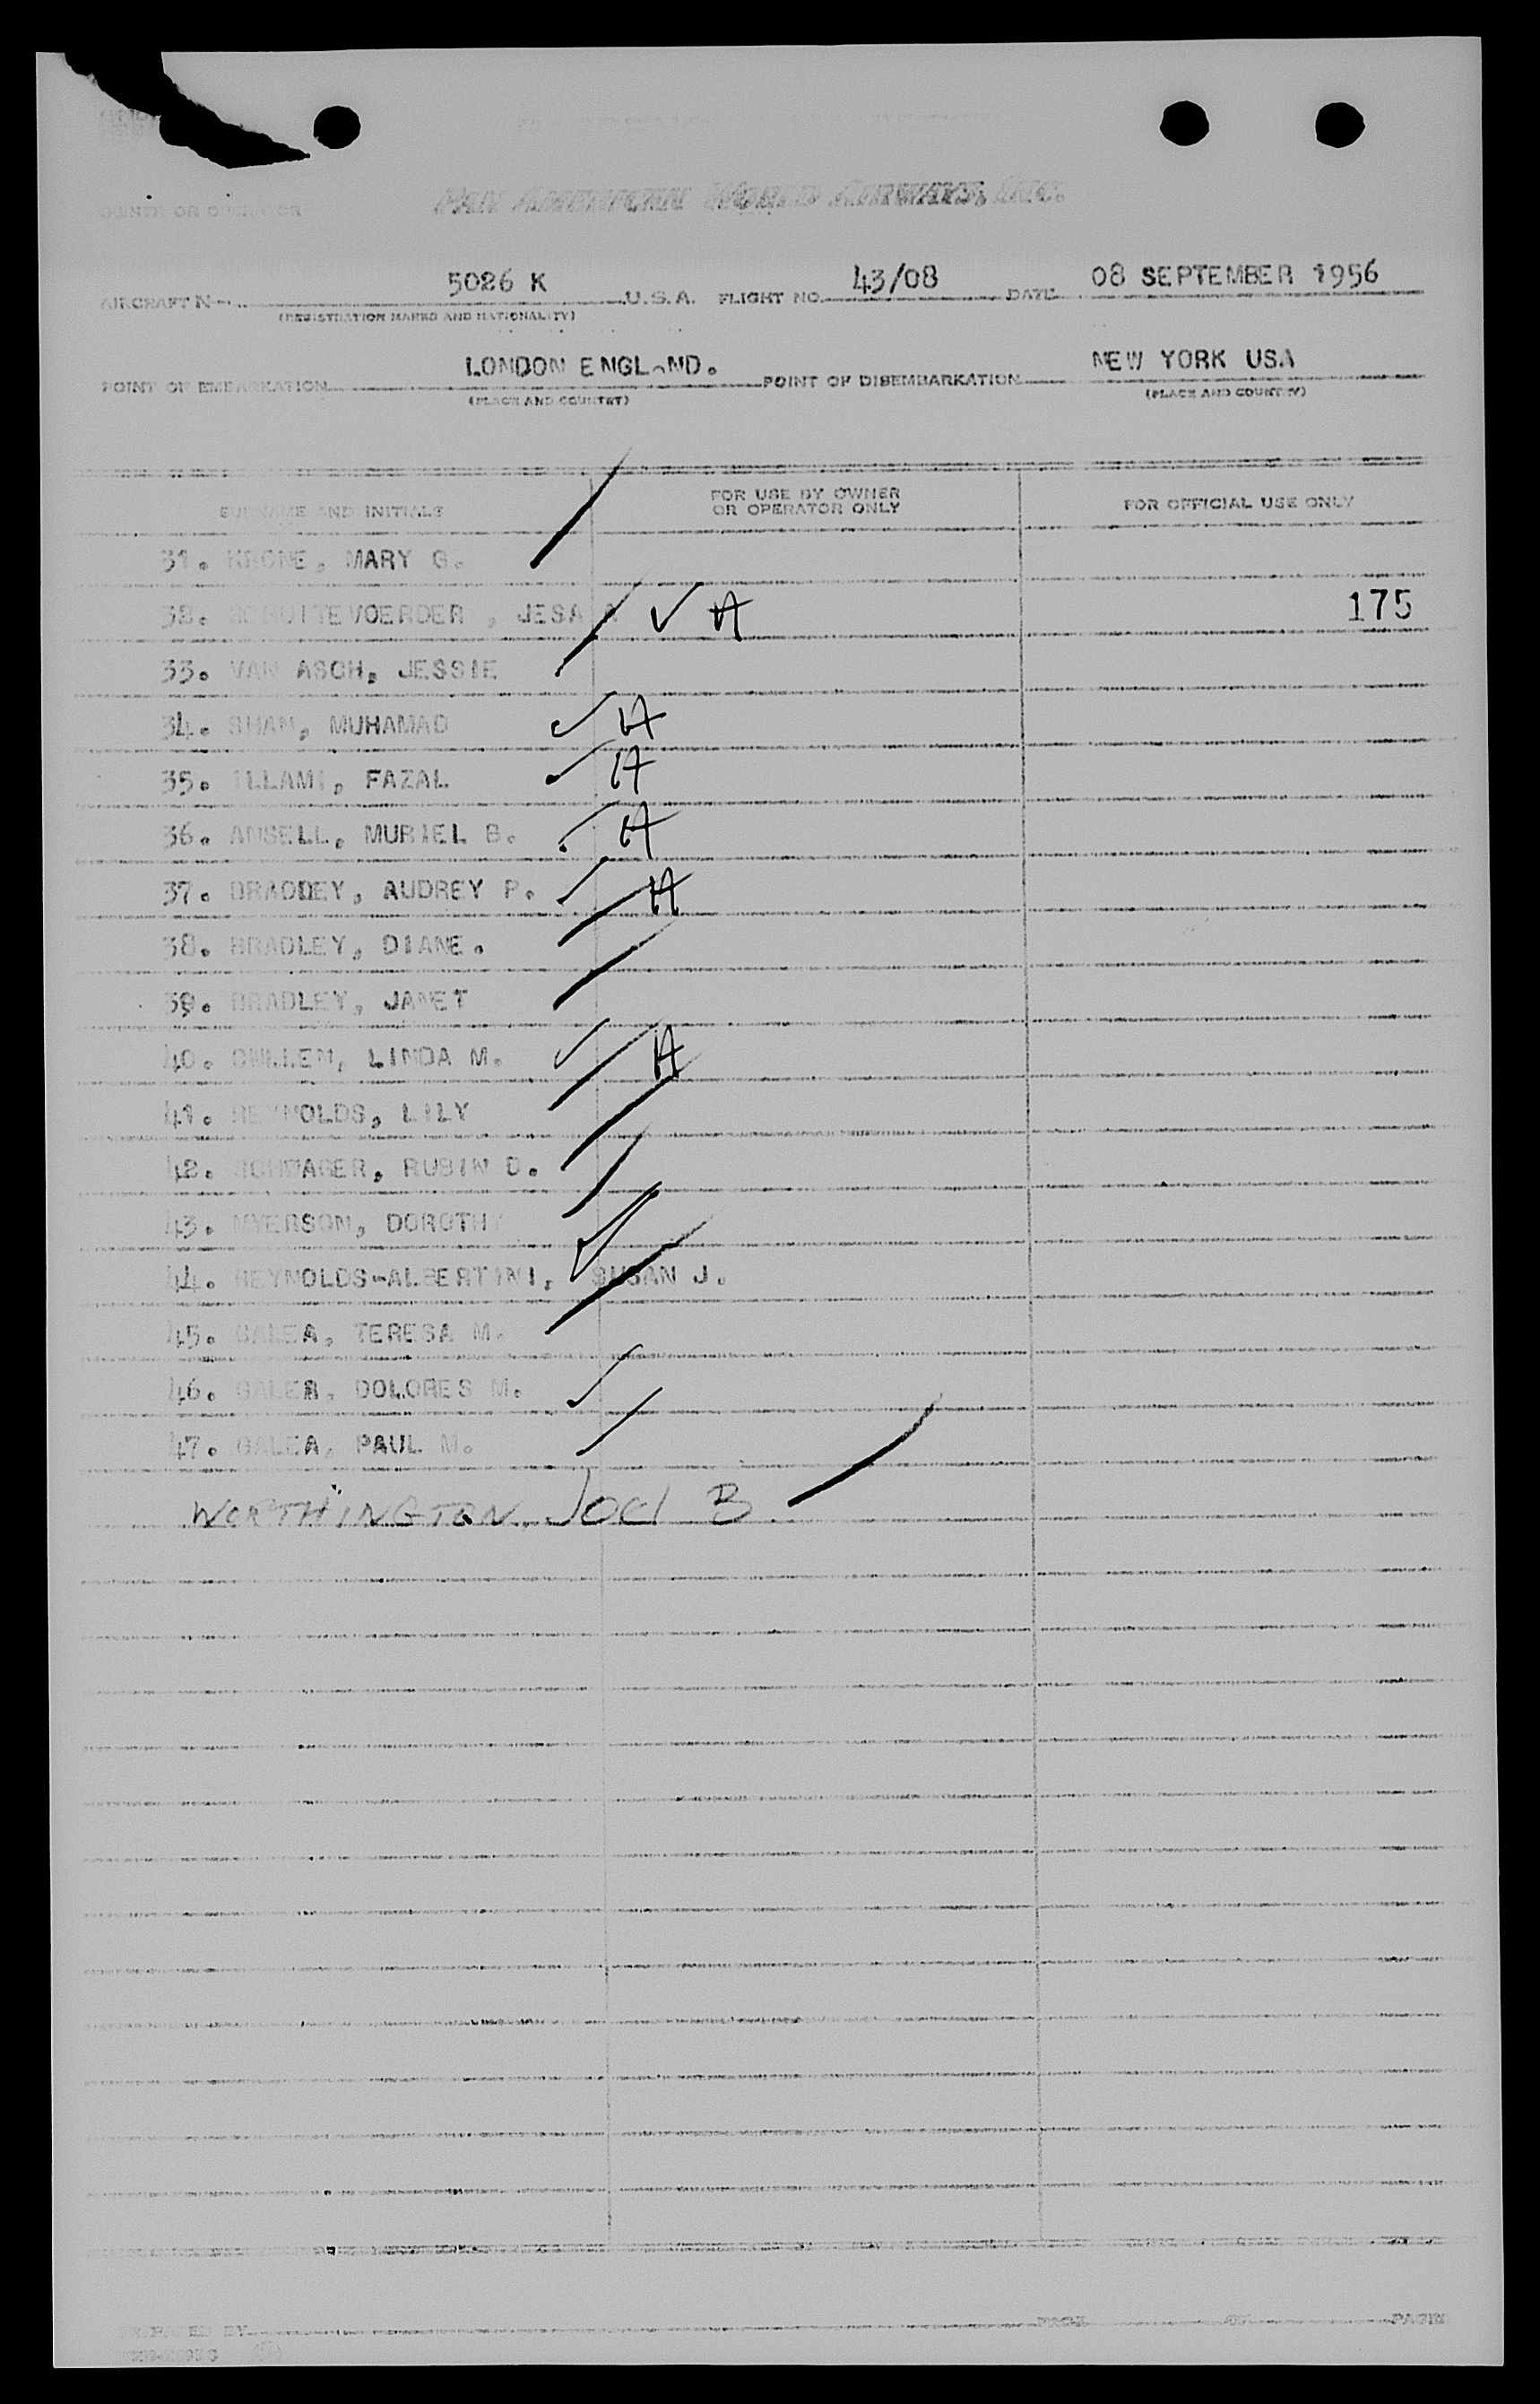 OWNER OR OPERATOR PAN AMERICAN WORLD AIRWAYS, INC.
AIRCRAFT N- 5026 K U.S.A. FLIGHT NO. 43/08 DATE 08 SEPTEMBER 1956
(REGISTRATION MARKS AND NATIONALITY)
POINT OF EMBARKATION LONDON ENGLAND. POINT OF DISEMBARKATION NEW YORK USA
(PLACE AND COUNTRY) (PLACE AND COUNTRY)
SURNAME AND INITIALS FOR USE BY OWNER OR OPERATOR ONLY FOR OFFICIAL USE ONLY
31. KRONE, MARY G.
32. VOERDER, JESA A ✓ H 175
33. VAN ASCH, JESSIE
34. SHAH, MUHAMAD ✓ H
35. ILLAMI, FAZAL ✓ H
36. ANSELL, MURIEL B. ✓ H
37. BRADDEY, AUDREY P. ✓ H
38. BRADLEY, DIANE.
39. BRADLEY, JANET
40. CULLEN, LINDA M. ✓ H
41. REYNOLDS, LILY
42. SCHWAGER, RUBIN D.
43. MYERSON, DOROTHY
44. REYNOLDS-ALBERTINI, SUSAN J.
45. GALEA, TERESA M.
46. GALEA, DOLORES M. ✓
47. GALEA, PAUL M.
WORTHINGTON, B
PREPARED BY PAGE OF PAGES